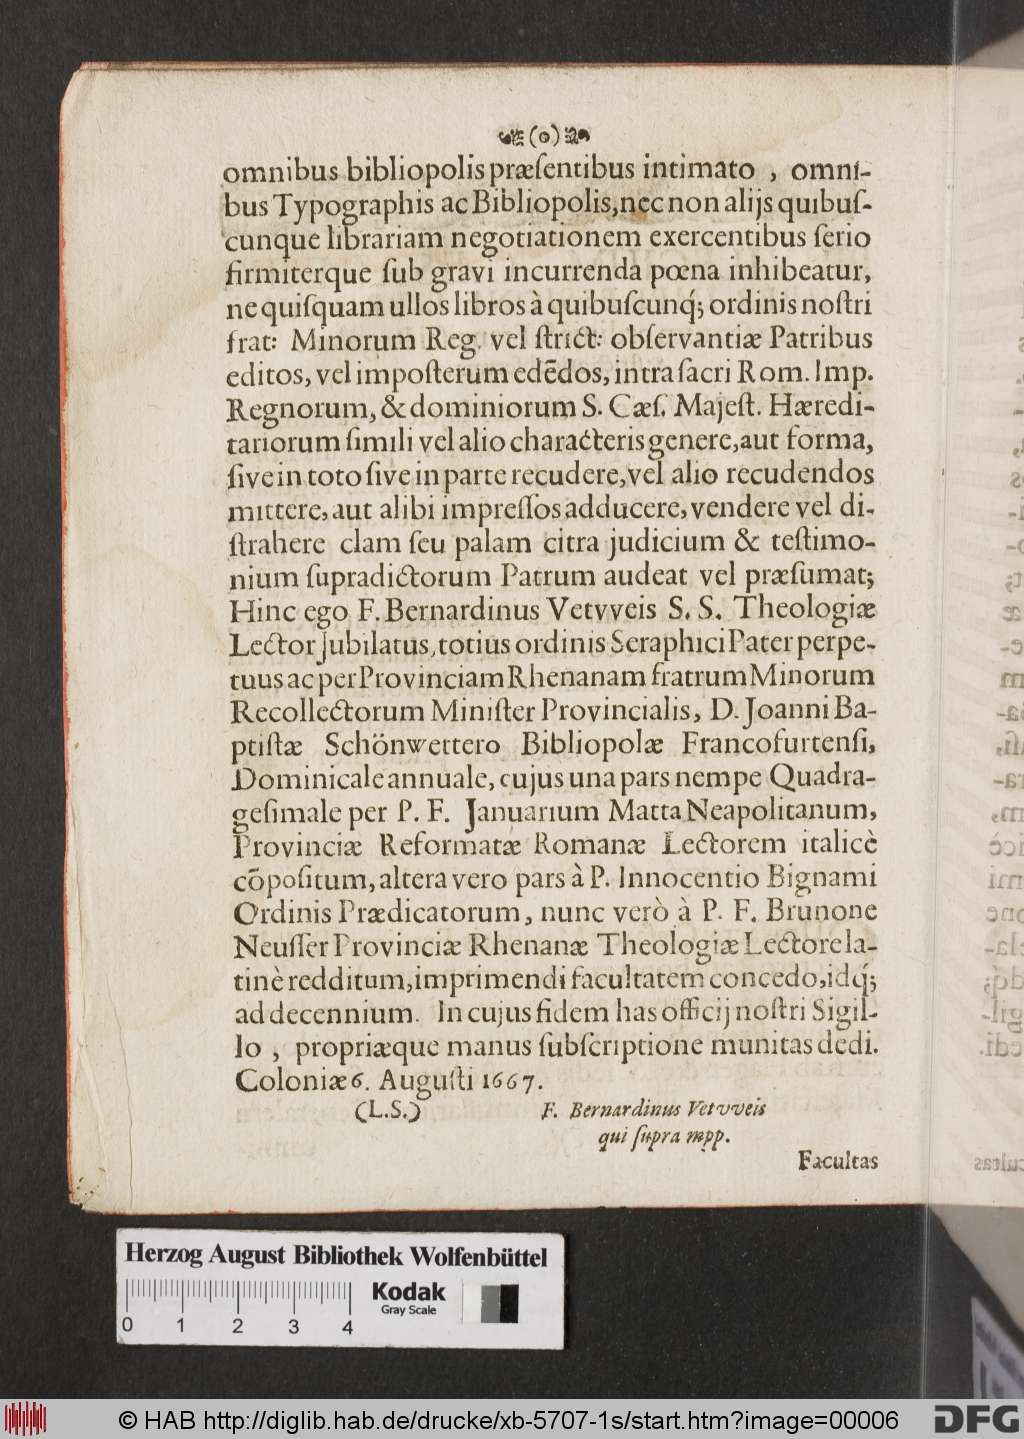 (o)
omnibus bibliopolis præſentibus intimato , omni-
bus Typographis ac Bibliopolis, nec non alijs quibuſ-
cunque librariam negotiationem exercentibus ſerio
firmiterque ſub gravi incurrenda pœna inhibeatur,
ne quiſquam ullos libros à quibuſcunq́; ordinis noſtri
frat: Minorum Reg. vel ſtrict: obſervantiæ Patribus
editos, vel impoſterum edēdos, intra ſacri Rom. Imp.
Regnorum, & dominiorum S. Cæſ. Majeſt. Hæredi-
tariorum ſimili vel alio characteris genere, aut forma,
ſive in toto ſive in parte recudere, vel alio recudendos
mittere, aut alibi impreſſos adducere, vendere vel di-
ſtrahere clam ſeu palam citra judicium & teſtimo-
nium ſupradictorum Patrum audeat vel præſumat;
Hinc ego F. Bernardinus Vetvveis S. S. Theologiæ
Lector Jubilatus, totius ordinis Seraphici Pater perpe-
tuus ac per Provinciam Rhenanam fratrum Minorum
Recollectorum Miniſter Provincialis, D. Joanni Ba-
ptiſtæ Schönwettero Bibliopolæ Francofurtenſi,
Dominicale annuale, cujus una pars nempe Quadra-
geſimale per P. F. Januarium Matta Neapolitanum,
Provinciæ Reformatæ Romanæ Lectorem italicè
cōpoſitum, altera vero pars à P. Innocentio Bignami
Ordinis Prædicatorum, nunc verò à P. F. Brunone
Neuſſer Provinciæ Rhenanæ Theologiæ Lectore la-
tinè redditum, imprimendi facultatem concedo, idq́;
ad decennium. In cujus fidem has officij noſtri Sigil-
lo , propriæque manus ſubſcriptione munitas dedi.
Coloniæ 6. Auguſti 1667.
(L.S.) F. Bernardinus Vetvveis
qui ſupra mpp.
Facultas
Herzog August Bibliothek Wolfenbüttel
Kodak
Gray Scale
0 1 2 3 4
© HAB http://diglib.hab.de/drucke/xb-5707-1s/start.htm?image=00006
DFG